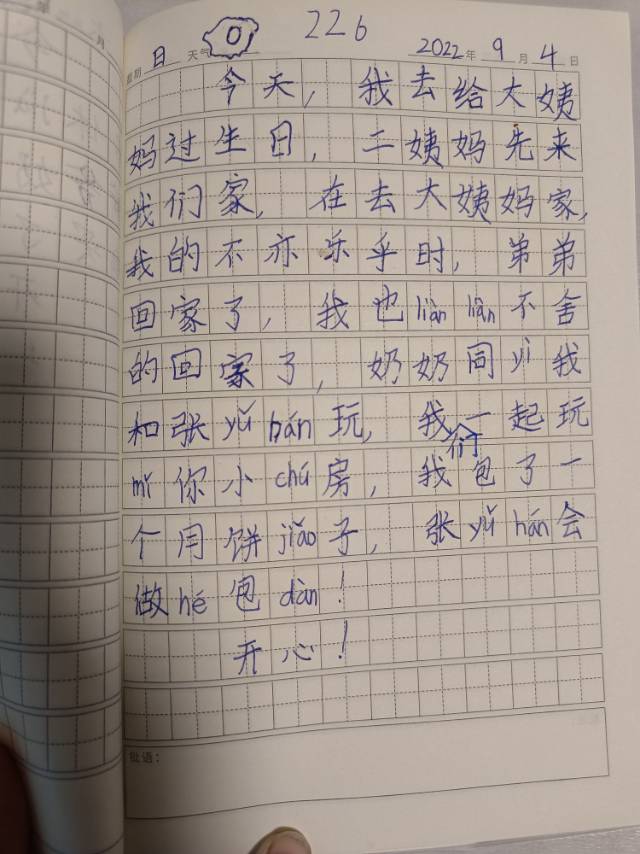 226
星期 日 天气 2022年 9月 4日
今天,我去给大姨
妈过生日,二姨妈先来
我们家,在去大姨妈家,
我的不亦乐乎时,弟弟
回家了,我也liàn liàn不舍
的回家了,奶奶同yì我
和张yǔ hán玩,我们一起玩
mí你小chú房,我包了一
个月饼jiǎo子,张yǔ hán会
做hé包dàn!
开心!
批语: